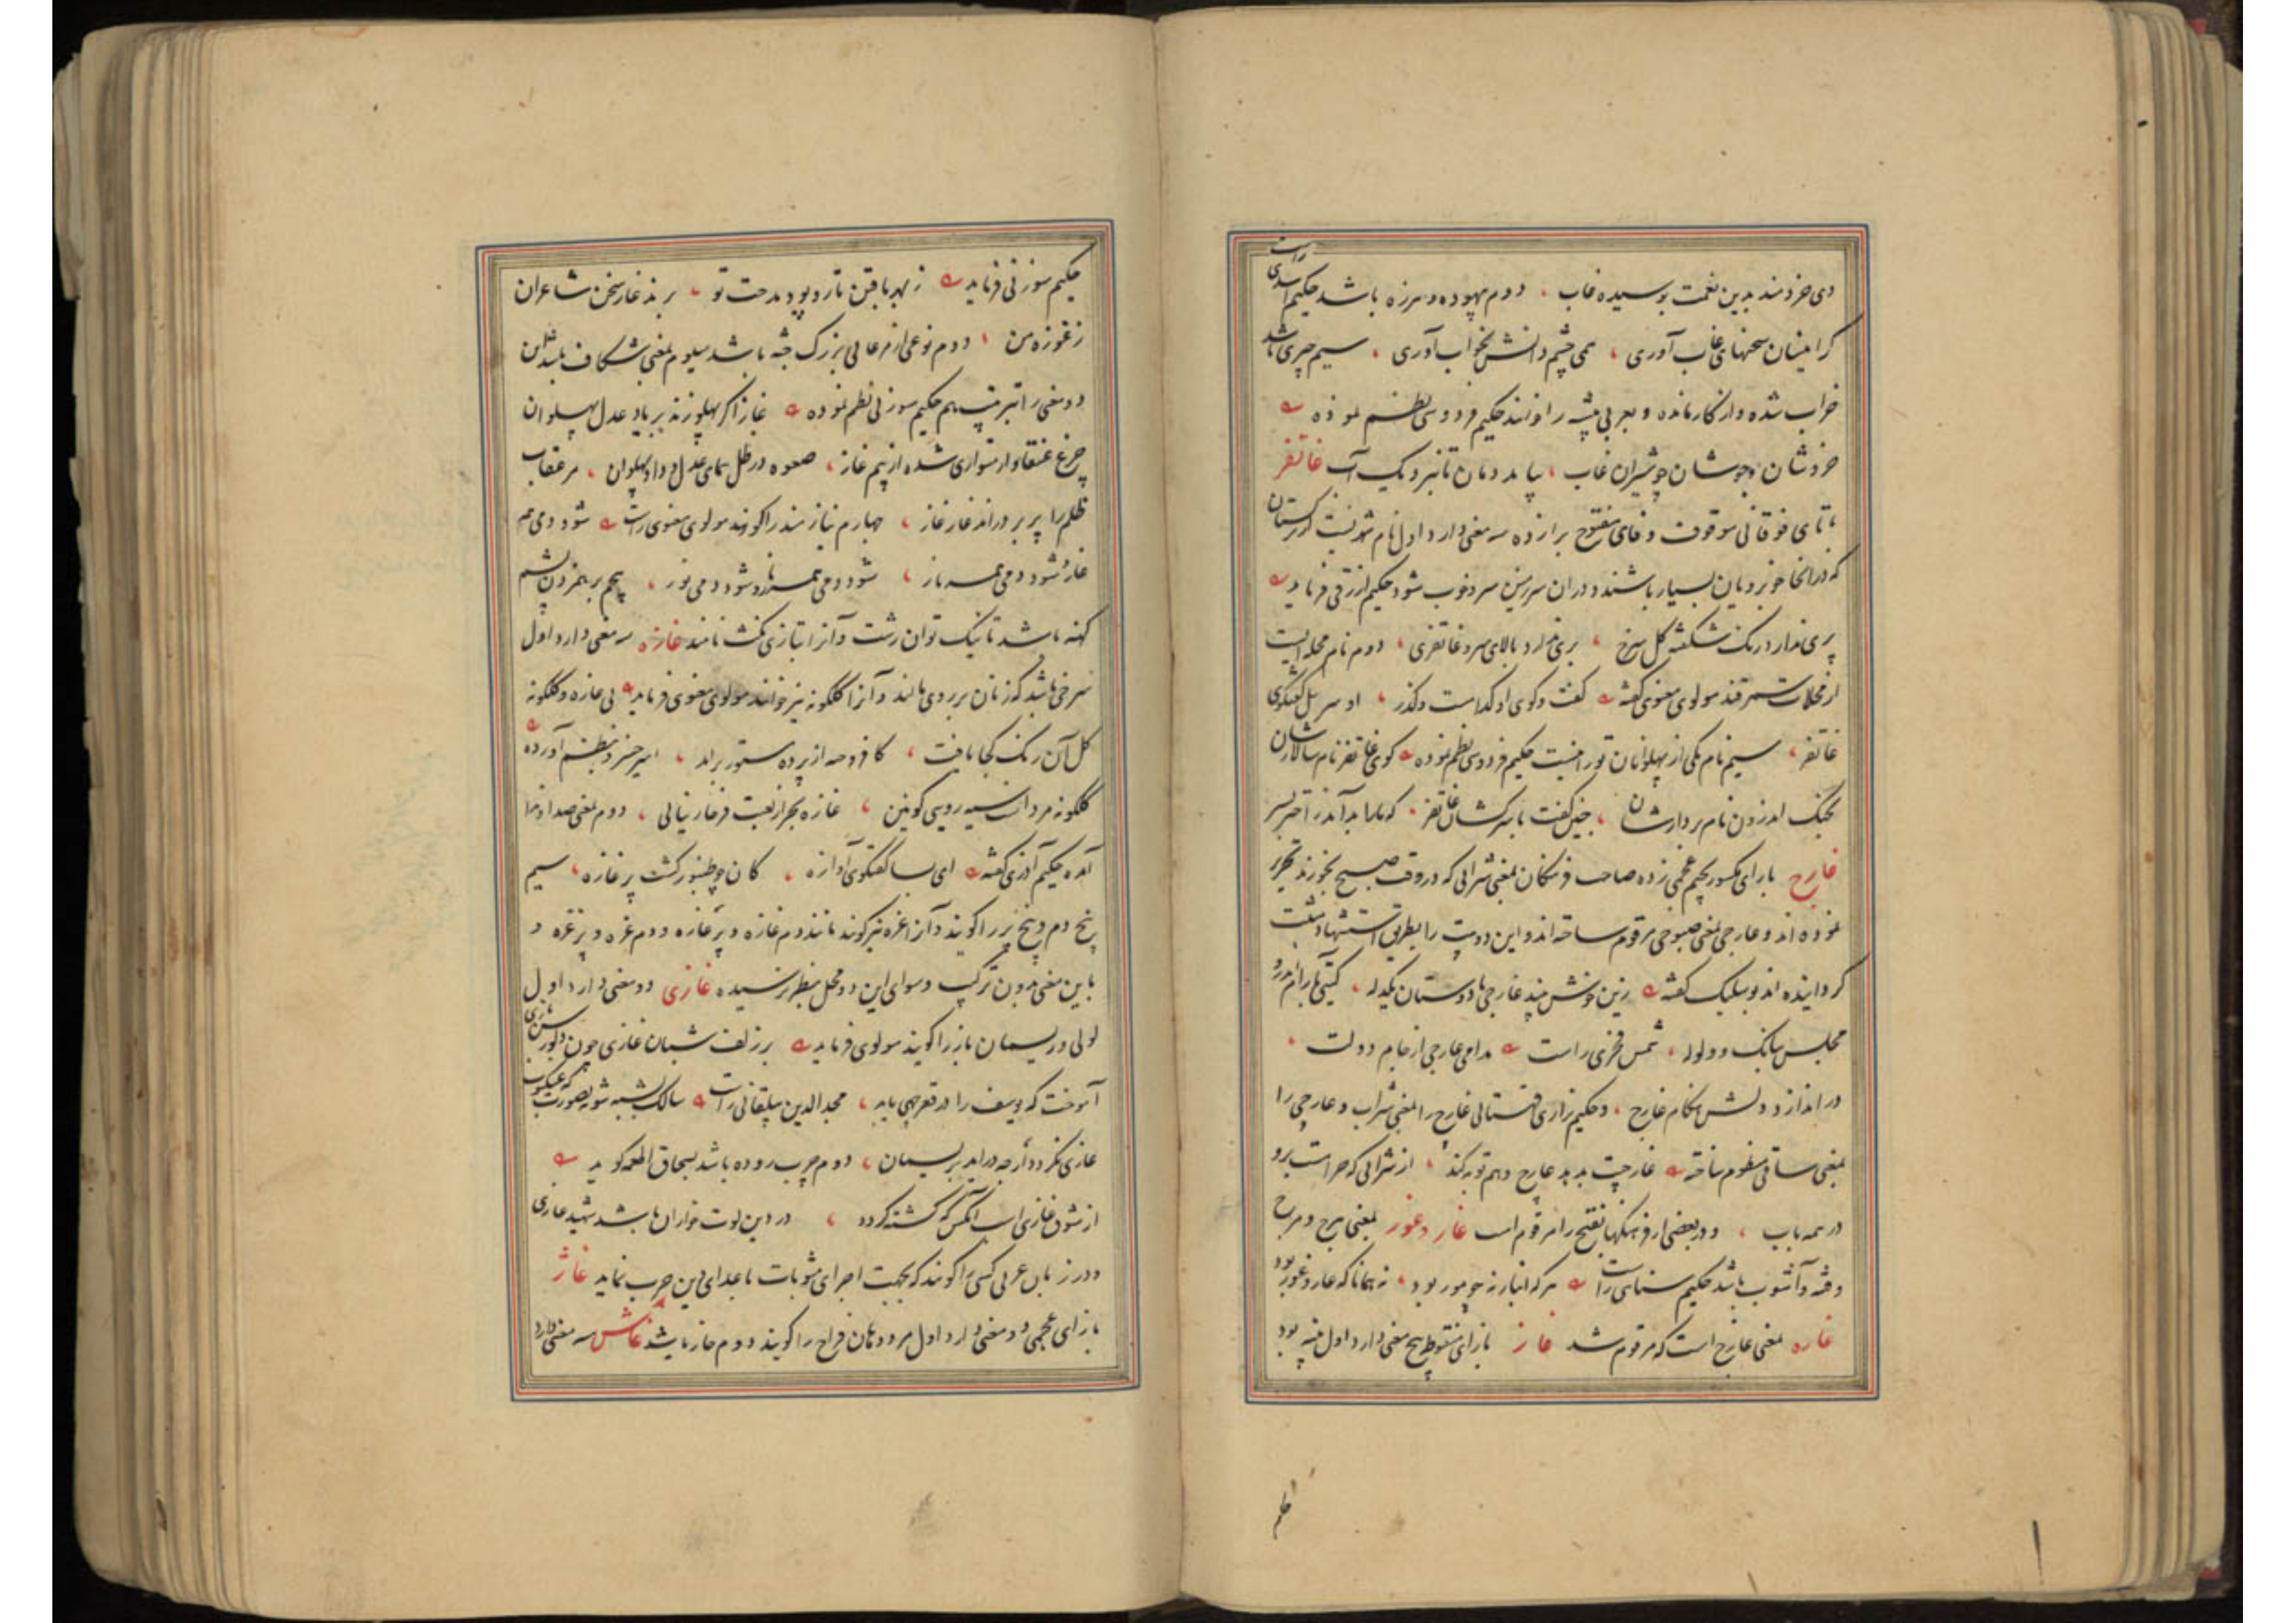 دمی خردمند بدین نغمت بوسیده غاب ، دوم بیهوده و هرزه باشد حکیم اسدی راست
کرا مینسان سخنهای غاب آوری ، همی چشم دانش بخواب آوری ، سیم چیزی باشد
خراب شده و از کار مانده و بعربی بیشه را خوانند حکیم فردوسی نظم نموده
خروشان و جوشان چو شیران غاب ، بیامد دمان تا نبردیک آب غاتفر
با تای فوقانی موقوف و فای مفتوح برا زده سه معنی دارد اول نام شهریست از ترکستان
که در انجا خوبرویان بسیار باشند و در آن سرزمین سرو خوب شود حکیم ازرقی فرماید
پری ندارد رنک شکفته کل سرخ ، پری ندارد بالای سرو غاتفری ، دوم نام محله ایست
از محلات سمرقند مولوی معنوی کفته کفت و کوی او کدامست و کذر ، او سر پل کفت کوی
غاتفر ، سیم نام یکی از پهلوانان تورانست حکیم فردوسی نظم نموده کوی غاتفر نام سالارشان
بجنک اندرون نام بردارشان ، چنین کفت با سرکشان غاتفر ، که ما را بد آمد ز اختر بسر
غارج با رای مکسور بجیم عجمی زده صاحب فرهنکان بمعنی شرابی که در وقت صبح بخورند تحریر
نموده اند و غارجی بمعنی صبوحی مرقوم ساخته اند و این دو بیت را بطریق استشهاد مثبت
کردانیده اند بوسلیک کفته زین خوش پند غارجی با دوستان یکدله ، کیتی بآرام اندرون
مجلس ببانک و ولوله ، شمس فخری راست مدامی غارجی از جام دولت ،
در اندازد دلش هنکام غارج ، و حکیم نزاری قهستانی غارج را بمعنی شراب و غارجی را
بمعنی ساقی منظوم ساخته غارجیت بدید غارج دهم توبه کند ، از شرابی که حرامست برو
در همه باب ، و در بعضی از فرهنکها بفتح را مرقوم است غار و غور بمعنی هرج و مرج
و فتنه و آشوب باشد حکیم سنایی راست هر که انبار نه چو مور بود ، نه همانا که غار و غور بود
غاره بمعنی غارج است که مرقوم شد غاز با زای منقوطه پنج معنی دارد اول پنبه بود
حکیم سوزنی فرماید ز بهر بافتن تار و پود مدحت تو ، برند غاز سخن شاعران
ز غوزه من ، دوم نوعی از مرغابی بزرک جثه باشد سیوم بمعنی شکاف باشد این
دو معنی را بترتیب هم حکیم سوزنی نظم نموده غاز اکر پهلو زند بر باد عدل پهلوان
چرغ عنقاوار متواری شده از بیم غاز ، صعوه در ظل همای عدل و داد پهلوان ، مر عقاب
ظلم را پر بر دراند غاز غاز ، چهارم نیازمند را کویند مولوی معنوی راست شود دمی همه
غاز و شود دمی همه ناز ، شود دمی همه نار و شود دمی نور ، پنجم بر هم زدن پشم
کهنه باشد تا نیک توان رشت و آنرا بتازی نکث نامند غازه سه معنی دارد اول
سرخی باشد که زنان بر روی مالند و آنرا کلکونه نیز خوانند مولوی معنوی فرماید بی غازه و کلکونه
کل آن رنک کجا یافت ، کافروخه از پرده مستور برآید ، امیر خسرو بنظم آورده
کلکونه مردانست سیه رویی کونین ، غازه بجز از لعبت فرخار نیابی ، دوم بمعنی صدا و ندا
آمده حکیم آذری کفته ای بسا کفتکوی آوازه ، کان چو طنبور کشت پر غازه ، سیم
بیخ دم و بیخ پر را کویند و آنرا غزه نیز کویند مانند دم غازه و پر غازه و دم غزه و پر غزه و
باین معنی بدون ترکیب و سوای این دو محل بنظر نرسیده غازی دو معنی دارد اول
لولی و ریسمان باز را کویند مولوی فرماید بر زلف شبان غازی چون دلو رسن بازی
آموخت که یوسف را در قعر چهی یابد ، مجد الدین بیلقانی راست سالک شبیه شود بصورت عنکبوت
غازی نکردد ار چه درآید بریسمان ، دوم چرب روده باشد بسحاق اطعمه کوید
از شوق غازی است آنکس که کشته کردد ، در دین لوت خواران باشد شهید غازی
و در زبان عربی کسی را کویند که بجهت اجرای مثوبات با اعدای دین حرب نماید غاژ
با زای عجمی دو معنی دارد اول مرد دهان فراخ را کویند دوم خار باشد غاش سه معنی دارد